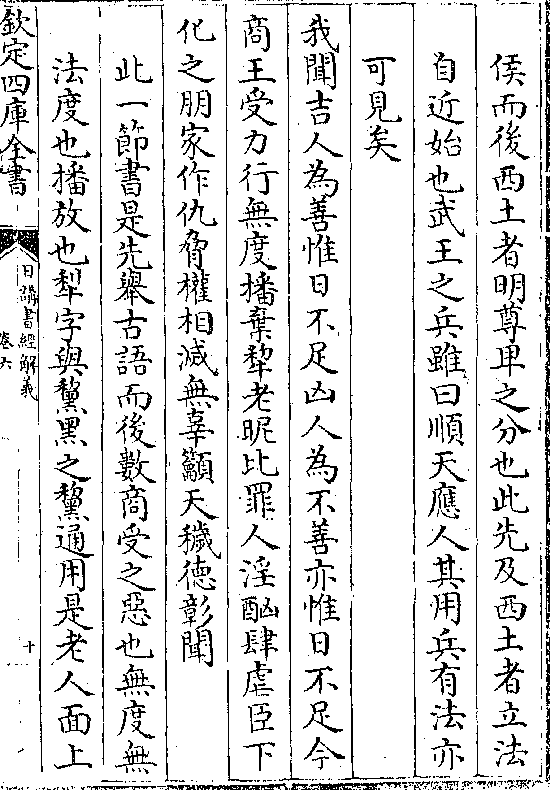 侯而後西土者明尊卑之分也此先及西土者立法
自近始也武王之兵雖曰順天應人其用兵有法亦
可見矣
我聞吉人為善惟日不足凶人為不善亦惟日不足今
商王受力行無度播棄犂老昵比罪人淫酗肆虐臣下
化之朋家作仇脅權相滅無辜籲天穢德彰聞
此一節書是先舉古語而後數商受之惡也無度無
法度也播放也犂字與黧黑之黧通用是老人面上
欽定四庫全書
日講書經解義
卷六
十